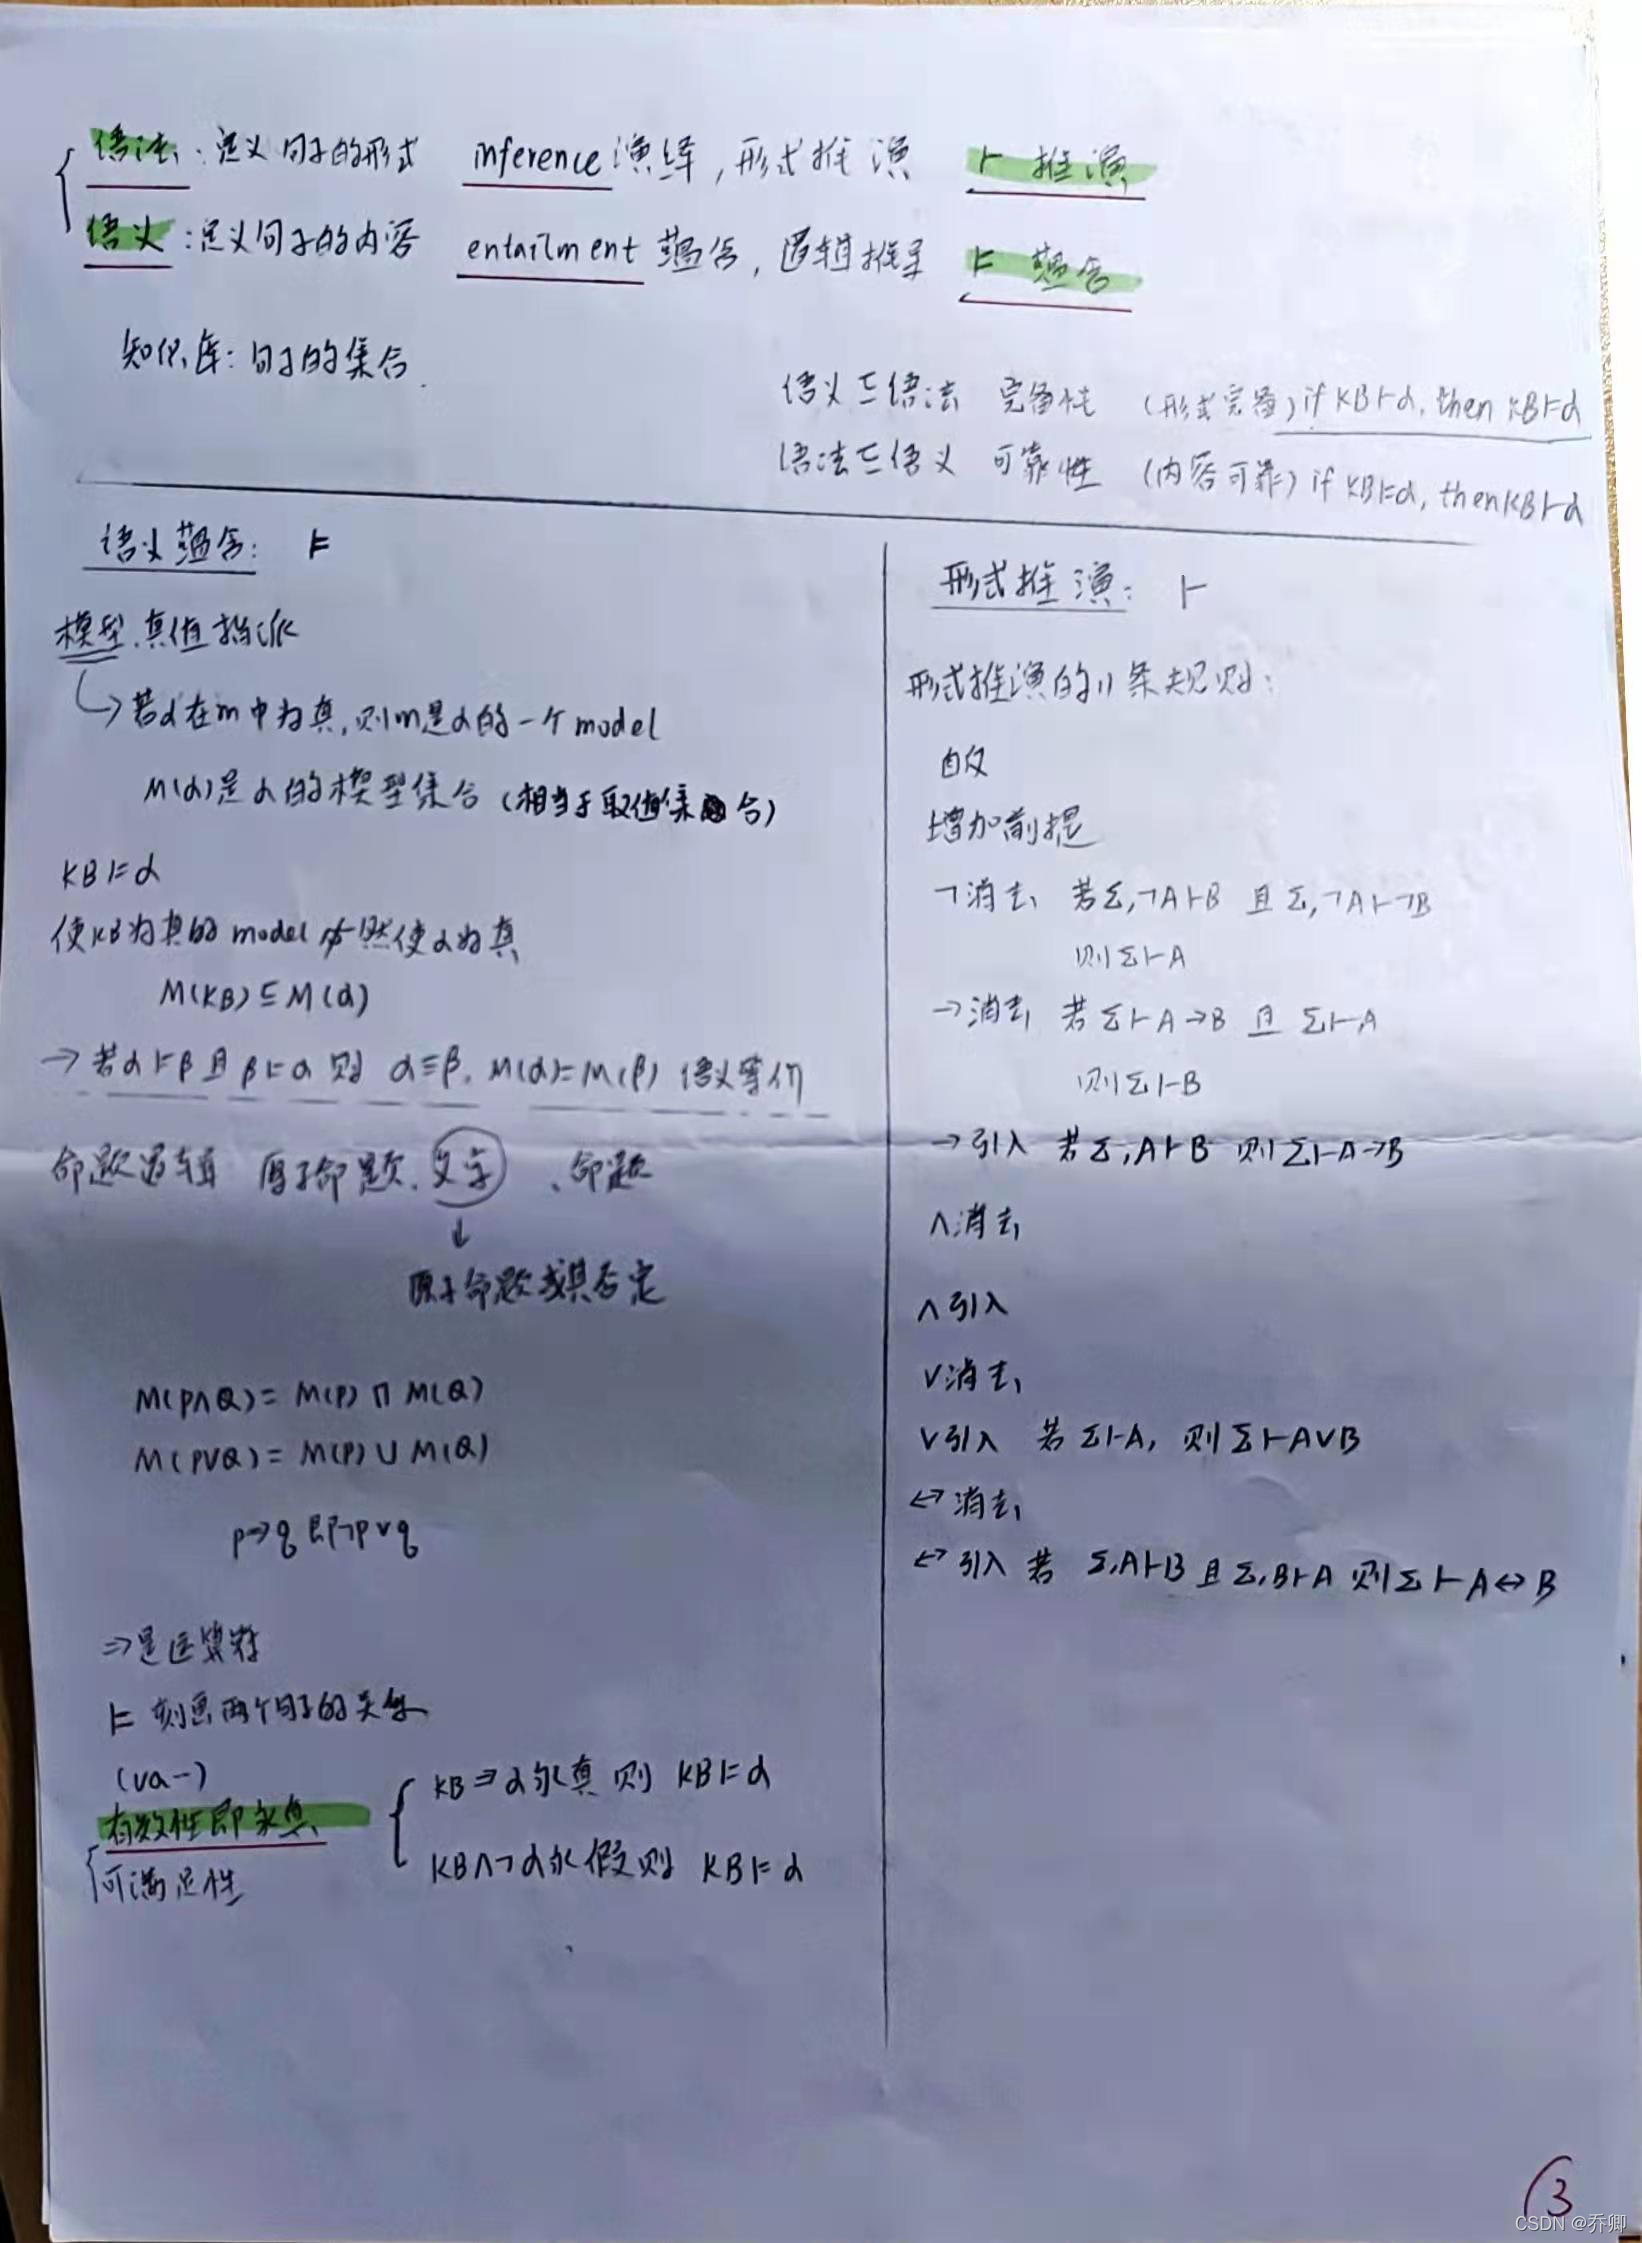 语法：定义句子的形式 inference 演绎，形式推演 ⊢ 推演
语义：定义句子的内容 entailment 蕴含，逻辑推导 ⊨ 蕴含
知识库：句子的集合.
语义⊆语法 完备性 （形式完备）if KB⊢α, then KB⊨α
语法⊆语义 可靠性 （内容可靠）if KB⊨α, then KB⊢α
语义蕴含： ⊨
模型、真值指派
↳若α在m中为真，则m是α的一个model
M(α)是α的模型集合（相当于取值集合）
KB⊨α
使KB为真的model必然使α为真
M(KB)⊆M(α)
→若α⊨β且β⊨α则 α≡β. M(α)=M(β) 语义等价
命题逻辑 原子命题、文字、命题
↓
原子命题或其否定
M(P∧Q)=M(P)∩M(Q)
M(P∨Q)=M(P)∪M(Q)
p→q即¬p∨q
⇒是运算符
⊨ 刻画两个句子的关系
(va-)
有效性即永真
可满足性
KB⇒α永真则 KB⊨α
KB∧¬α永假则 KB⊨α
形式推演： ⊢
形式推演的11条规则：
自反
增加前提
¬消去 若Σ,¬A⊢B 且Σ,¬A⊢¬B
则Σ⊢A
→消去 若Σ⊢A→B 且 Σ⊢A
则Σ⊢B
→引入 若Σ,A⊢B 则Σ⊢A→B
∧消去
∧引入
∨消去
∨引入 若Σ⊢A, 则Σ⊢A∨B
↔消去
↔引入 若 Σ,A⊢B且Σ,B⊢A 则Σ⊢A↔B
3
CSDN @乔卿